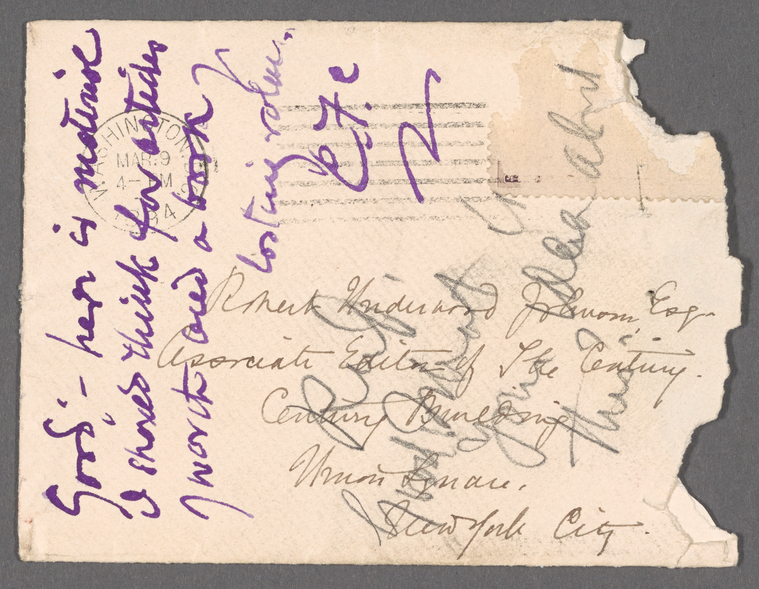 Robert Underwood Johnson, Esq.
Associate Editor of The Century.
Century Building
Union Square.
New York City.
WASHINGTON
MAR. 9
4- PM
94
Good - here is material
I should think for articles
worth and a book
lasting
What
your idea about
this?